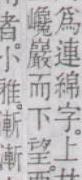 爲連綿字。上林
巉巖而下望。
者。小雅。漸漸